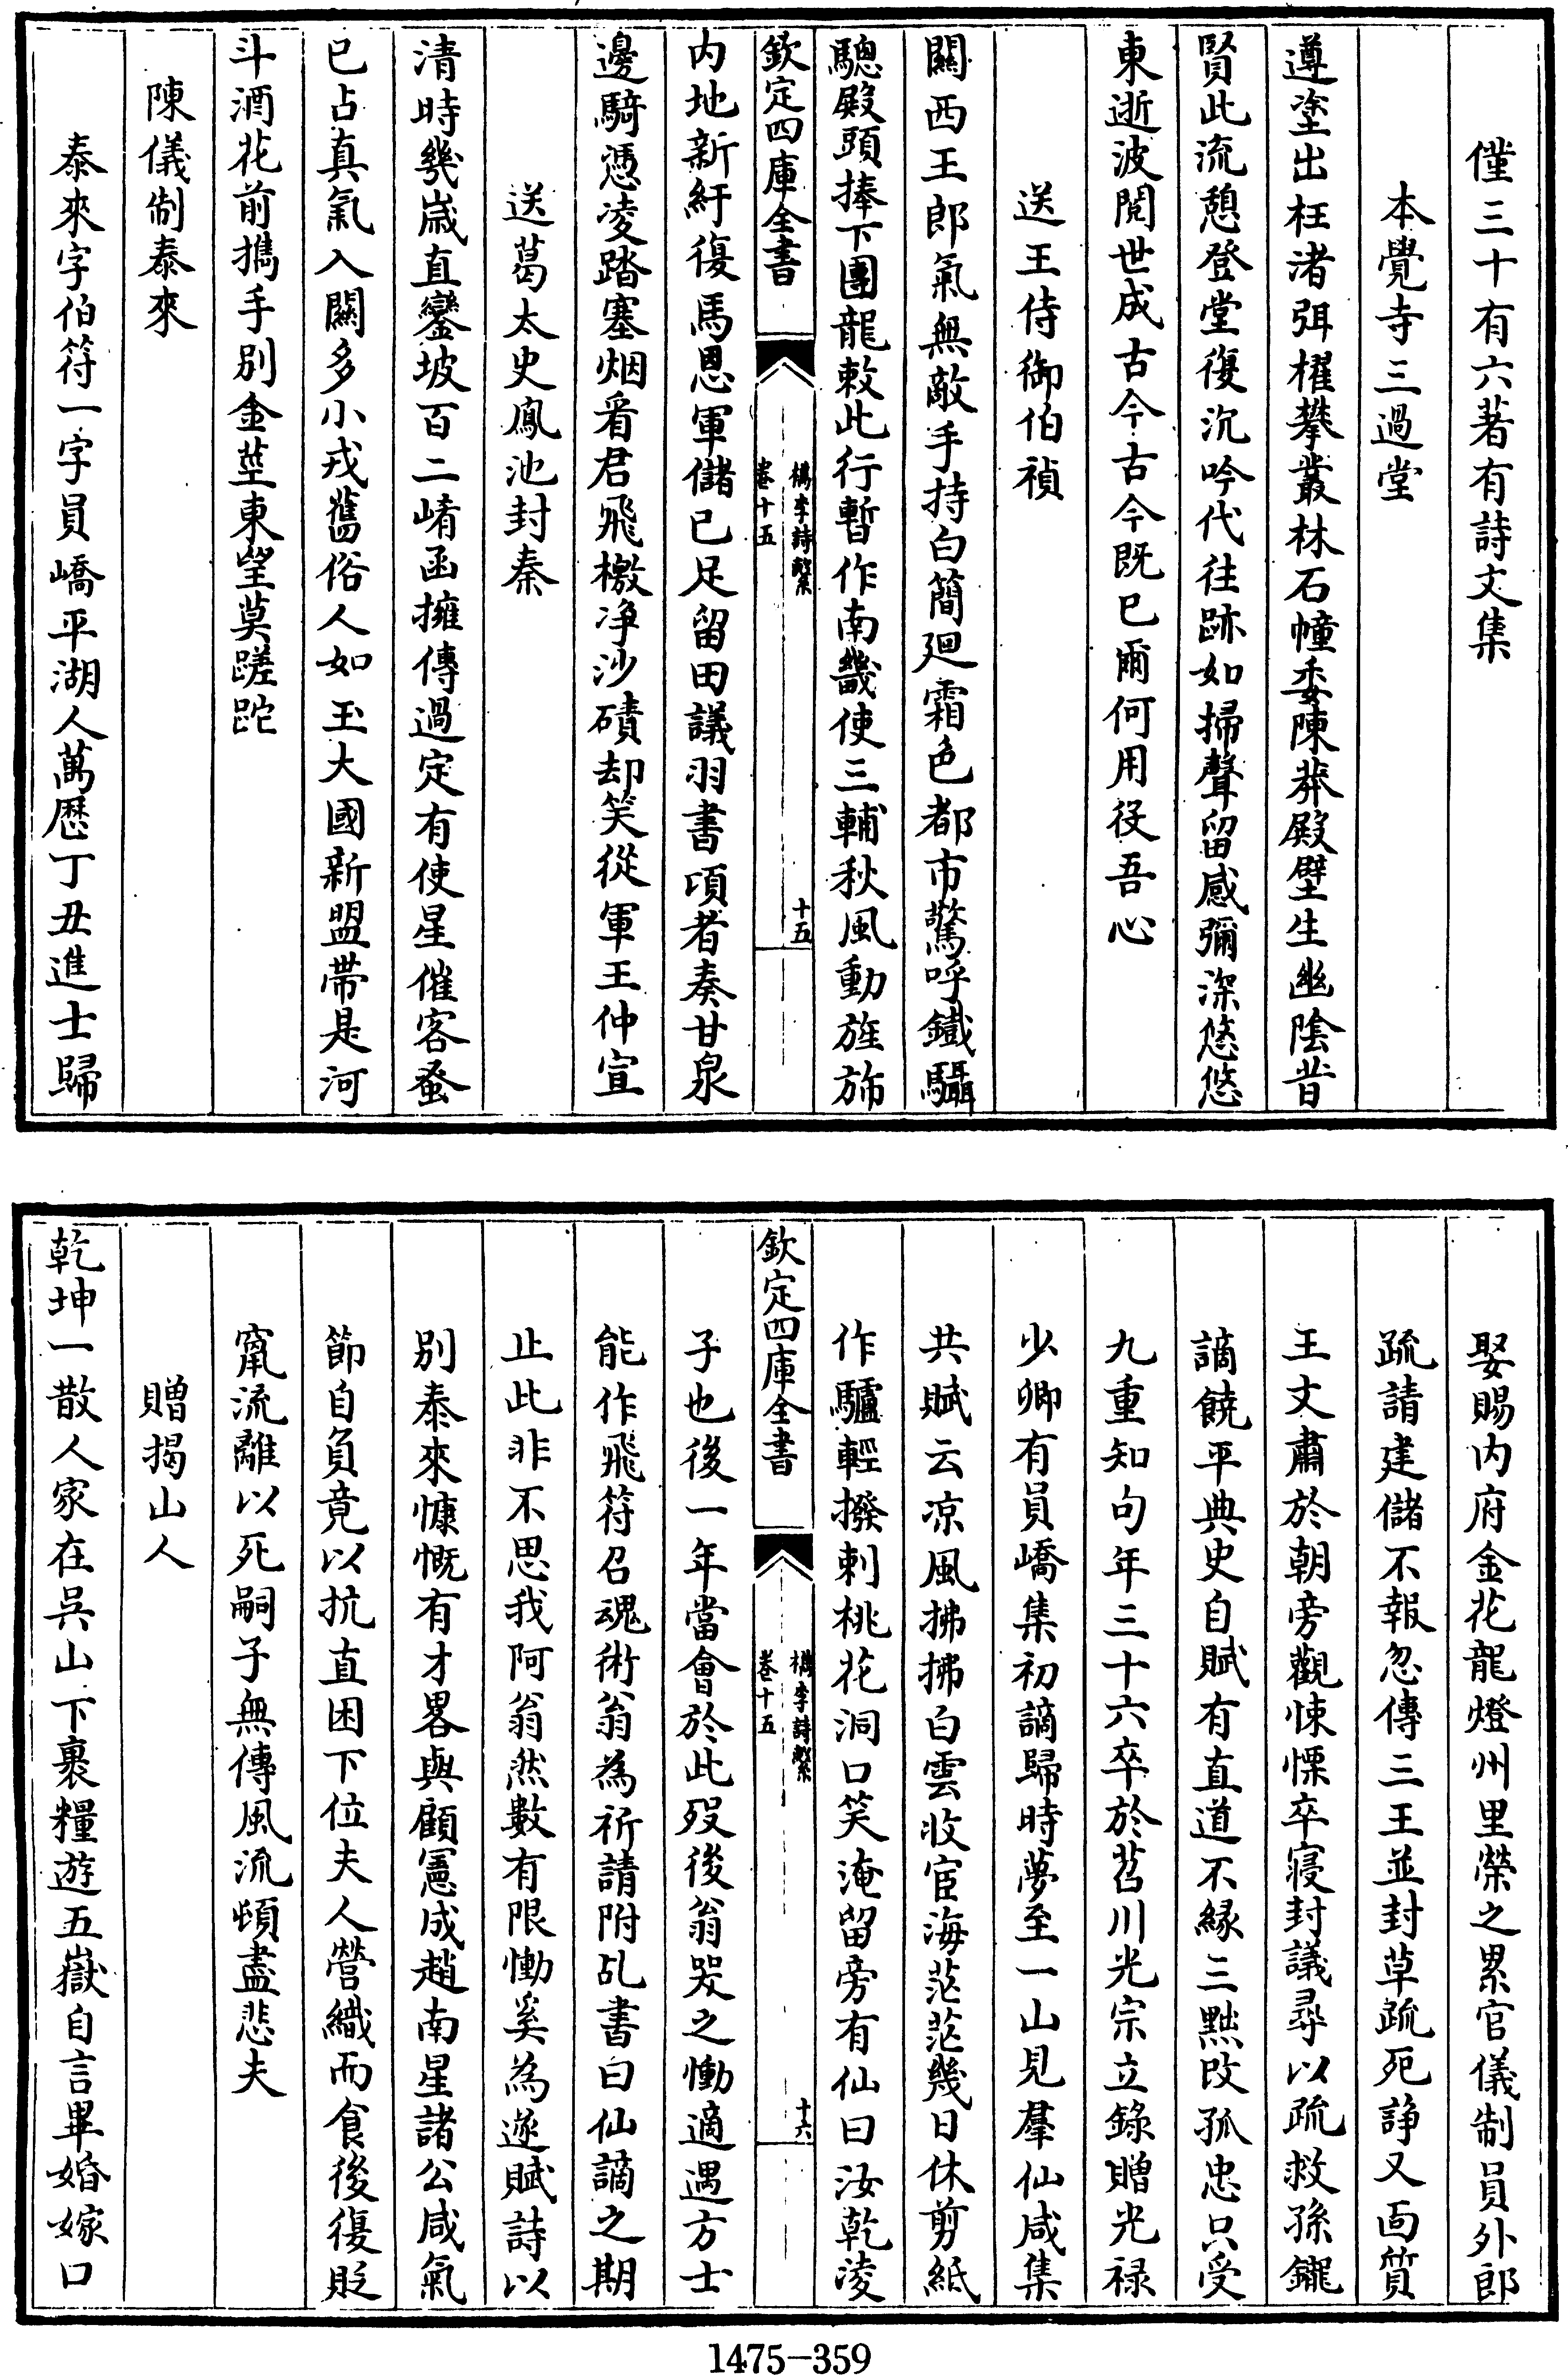 僅三十有六著有詩文集
本覺寺三過堂
遵塗出枉渚弭櫂攀叢林石幢委陳莽殿壁生幽陰昔
賢此流憩登堂復沉吟代往跡如掃聲留感彌深悠悠
東逝波閱世成古今古今既已爾何用役吾心
送王侍御伯禎
關西王郎氣無敵手持白簡廻霜色都市驚呼鐵驄
驄殿頭捧下團龍敕此行暫作南畿使三輔秋風動旌斾
欽定四庫全書
檇李詩繫
卷十五
十五
内地新紆復馬恩軍儲已足留田議羽書項者奏甘泉
邊騎憑凌踏塞烟看君飛檄净沙磧却笑從軍王仲宣
送葛太史鳳池封秦
清時幾歲直鑾坡百二崤函擁傳過定有使星催客蚤
已占真氣入關多小戎舊俗人如玉大國新盟帶是河
斗酒花前擕手别金莖東望莫蹉跎
陳儀制泰來
泰來字伯符一字員嶠平湖人萬歷丁丑進士歸
娶賜内府金花龍燈州里榮之累官儀制員外郎
疏請建儲不報忽傳三王並封草疏死諍又面質
王文肅於朝旁觀悚慄卒寢封議尋以疏救孫鑨
謫饒平典史自賦有直道不縁三黜改孤忠只受
九重知句年三十六卒於苕川光宗立錄贈光禄
少卿有員嶠集初謫歸時夢至一山見羣仙咸集
共賦云凉風拂拂白雲收宦海茫茫幾日休剪紙
作驢輕撥剌桃花洞口笑淹留旁有仙曰汝乾淩
欽定四庫全書
檇李詩繫
卷十五
十六
子也後一年當會於此歿後翁哭之慟適遇方士
能作飛符召魂術翁為祈請附乩書曰仙謫之期
止此非不思我阿翁然數有限慟奚為遂賦詩以
别泰來慷慨有才畧與顧憲成趙南星諸公咸氣
節自負竟以抗直困下位夫人營織而食後復貶
竄流離以死嗣子無傳風流頓盡悲夫
贈揭山人
乾坤一散人家在吳山下裹糧遊五嶽自言畢婚嫁口
1475-359